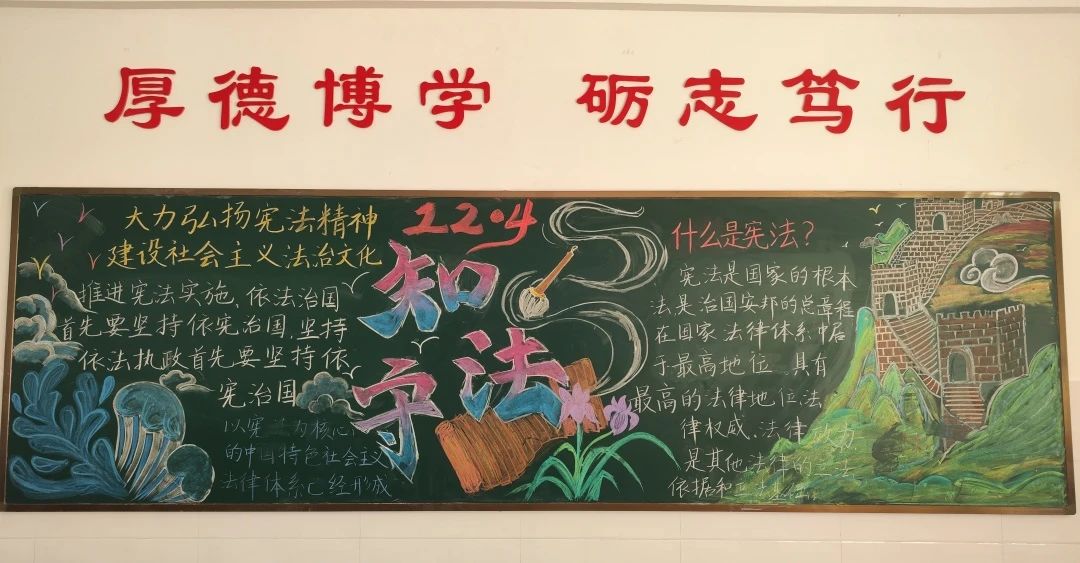 厚德博学 砺志笃行
大力弘扬宪法精神
建设社会主义法治文化
推进宪法实施、依法治国
首先要坚持依宪治国，坚持
依法执政首先要坚持依
宪治国
以宪 为核心
的中国特色社会主义
法律体系已经形成
12·4
知法
守
什么是宪法？
宪法是国家的根本
法是治国安邦的总章程
在国家法律体系中居
于最高地位 具有
最高的法律地位法
律权威、法律效力
是其他法律的立法
依据和